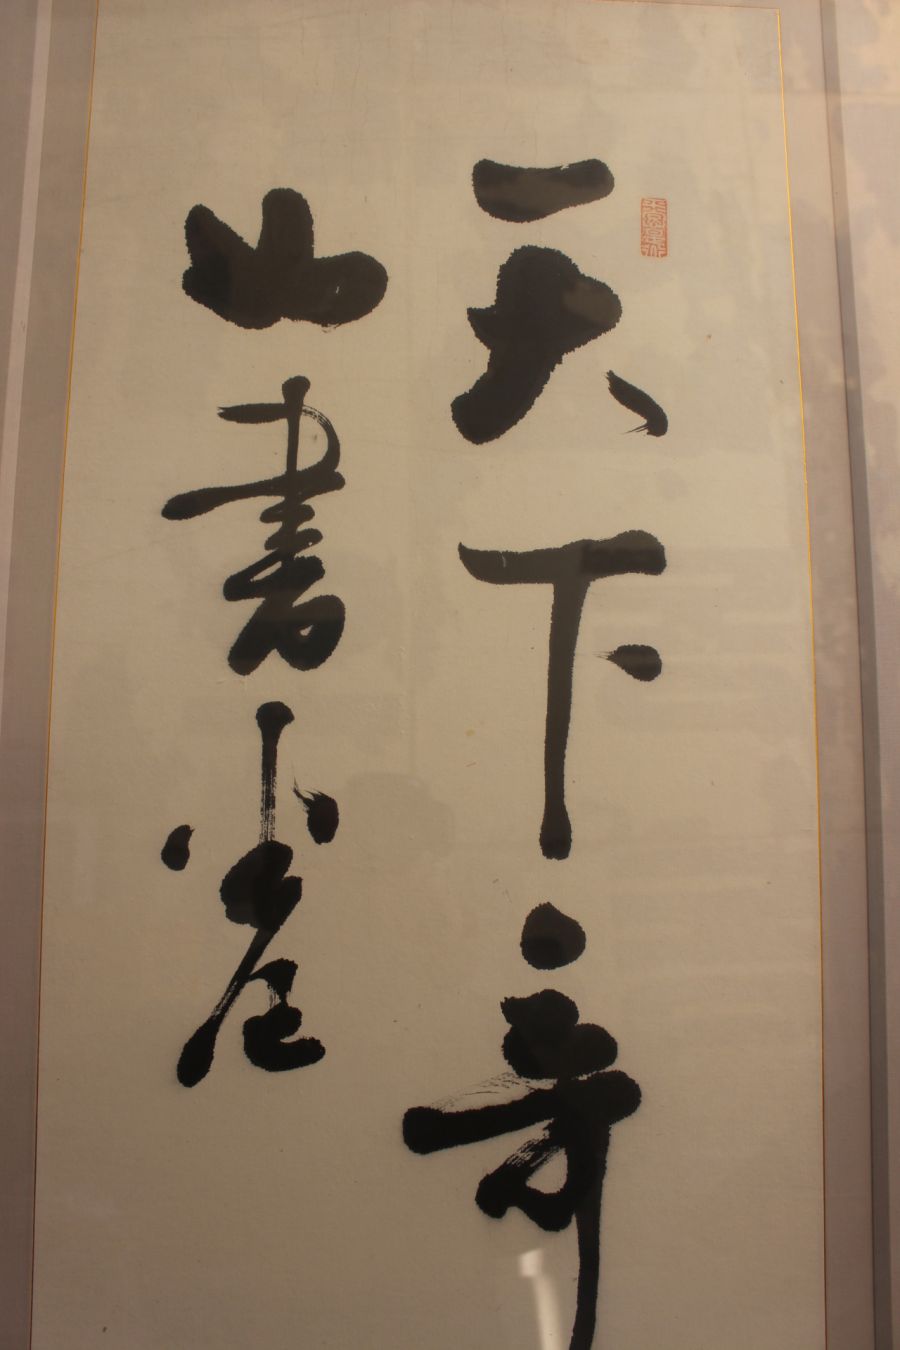 天下奇
山書